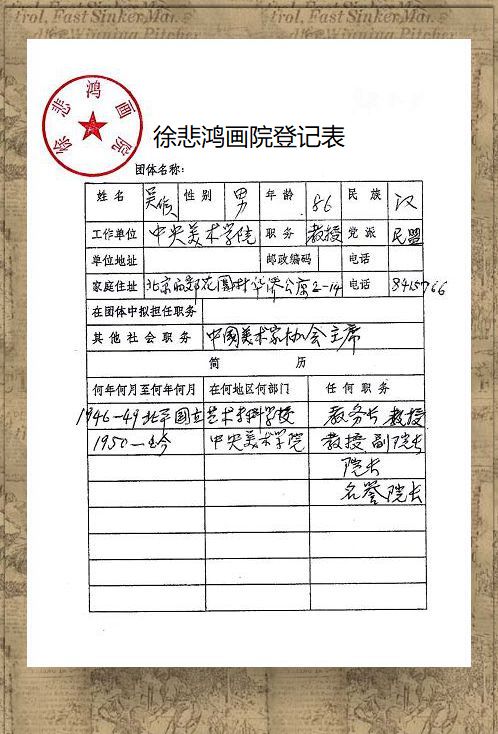 trol, Fast Sinker, Mar.
Winning Pitcher
徐悲鸿画院
徐悲鸿画院登记表
团体名称：
姓名 吴作人 性别 男 年龄 86 民族 汉
工作单位 中央美术学院 职务 教授 党派 民盟
单位地址 邮政编码 电话
家庭住址 北京西郊花园村华侨公寓2-14 电话 8415766
在团体中拟担任职务
其他社会职务 中国美术家协会主席
简 历
何年何月至何年何月 在何地区何部门 任何职务
1946-49 北平国立艺术专科学校 教务长 教授
1950-至今 中央美术学院 教授 副院长
院长
名誉院长